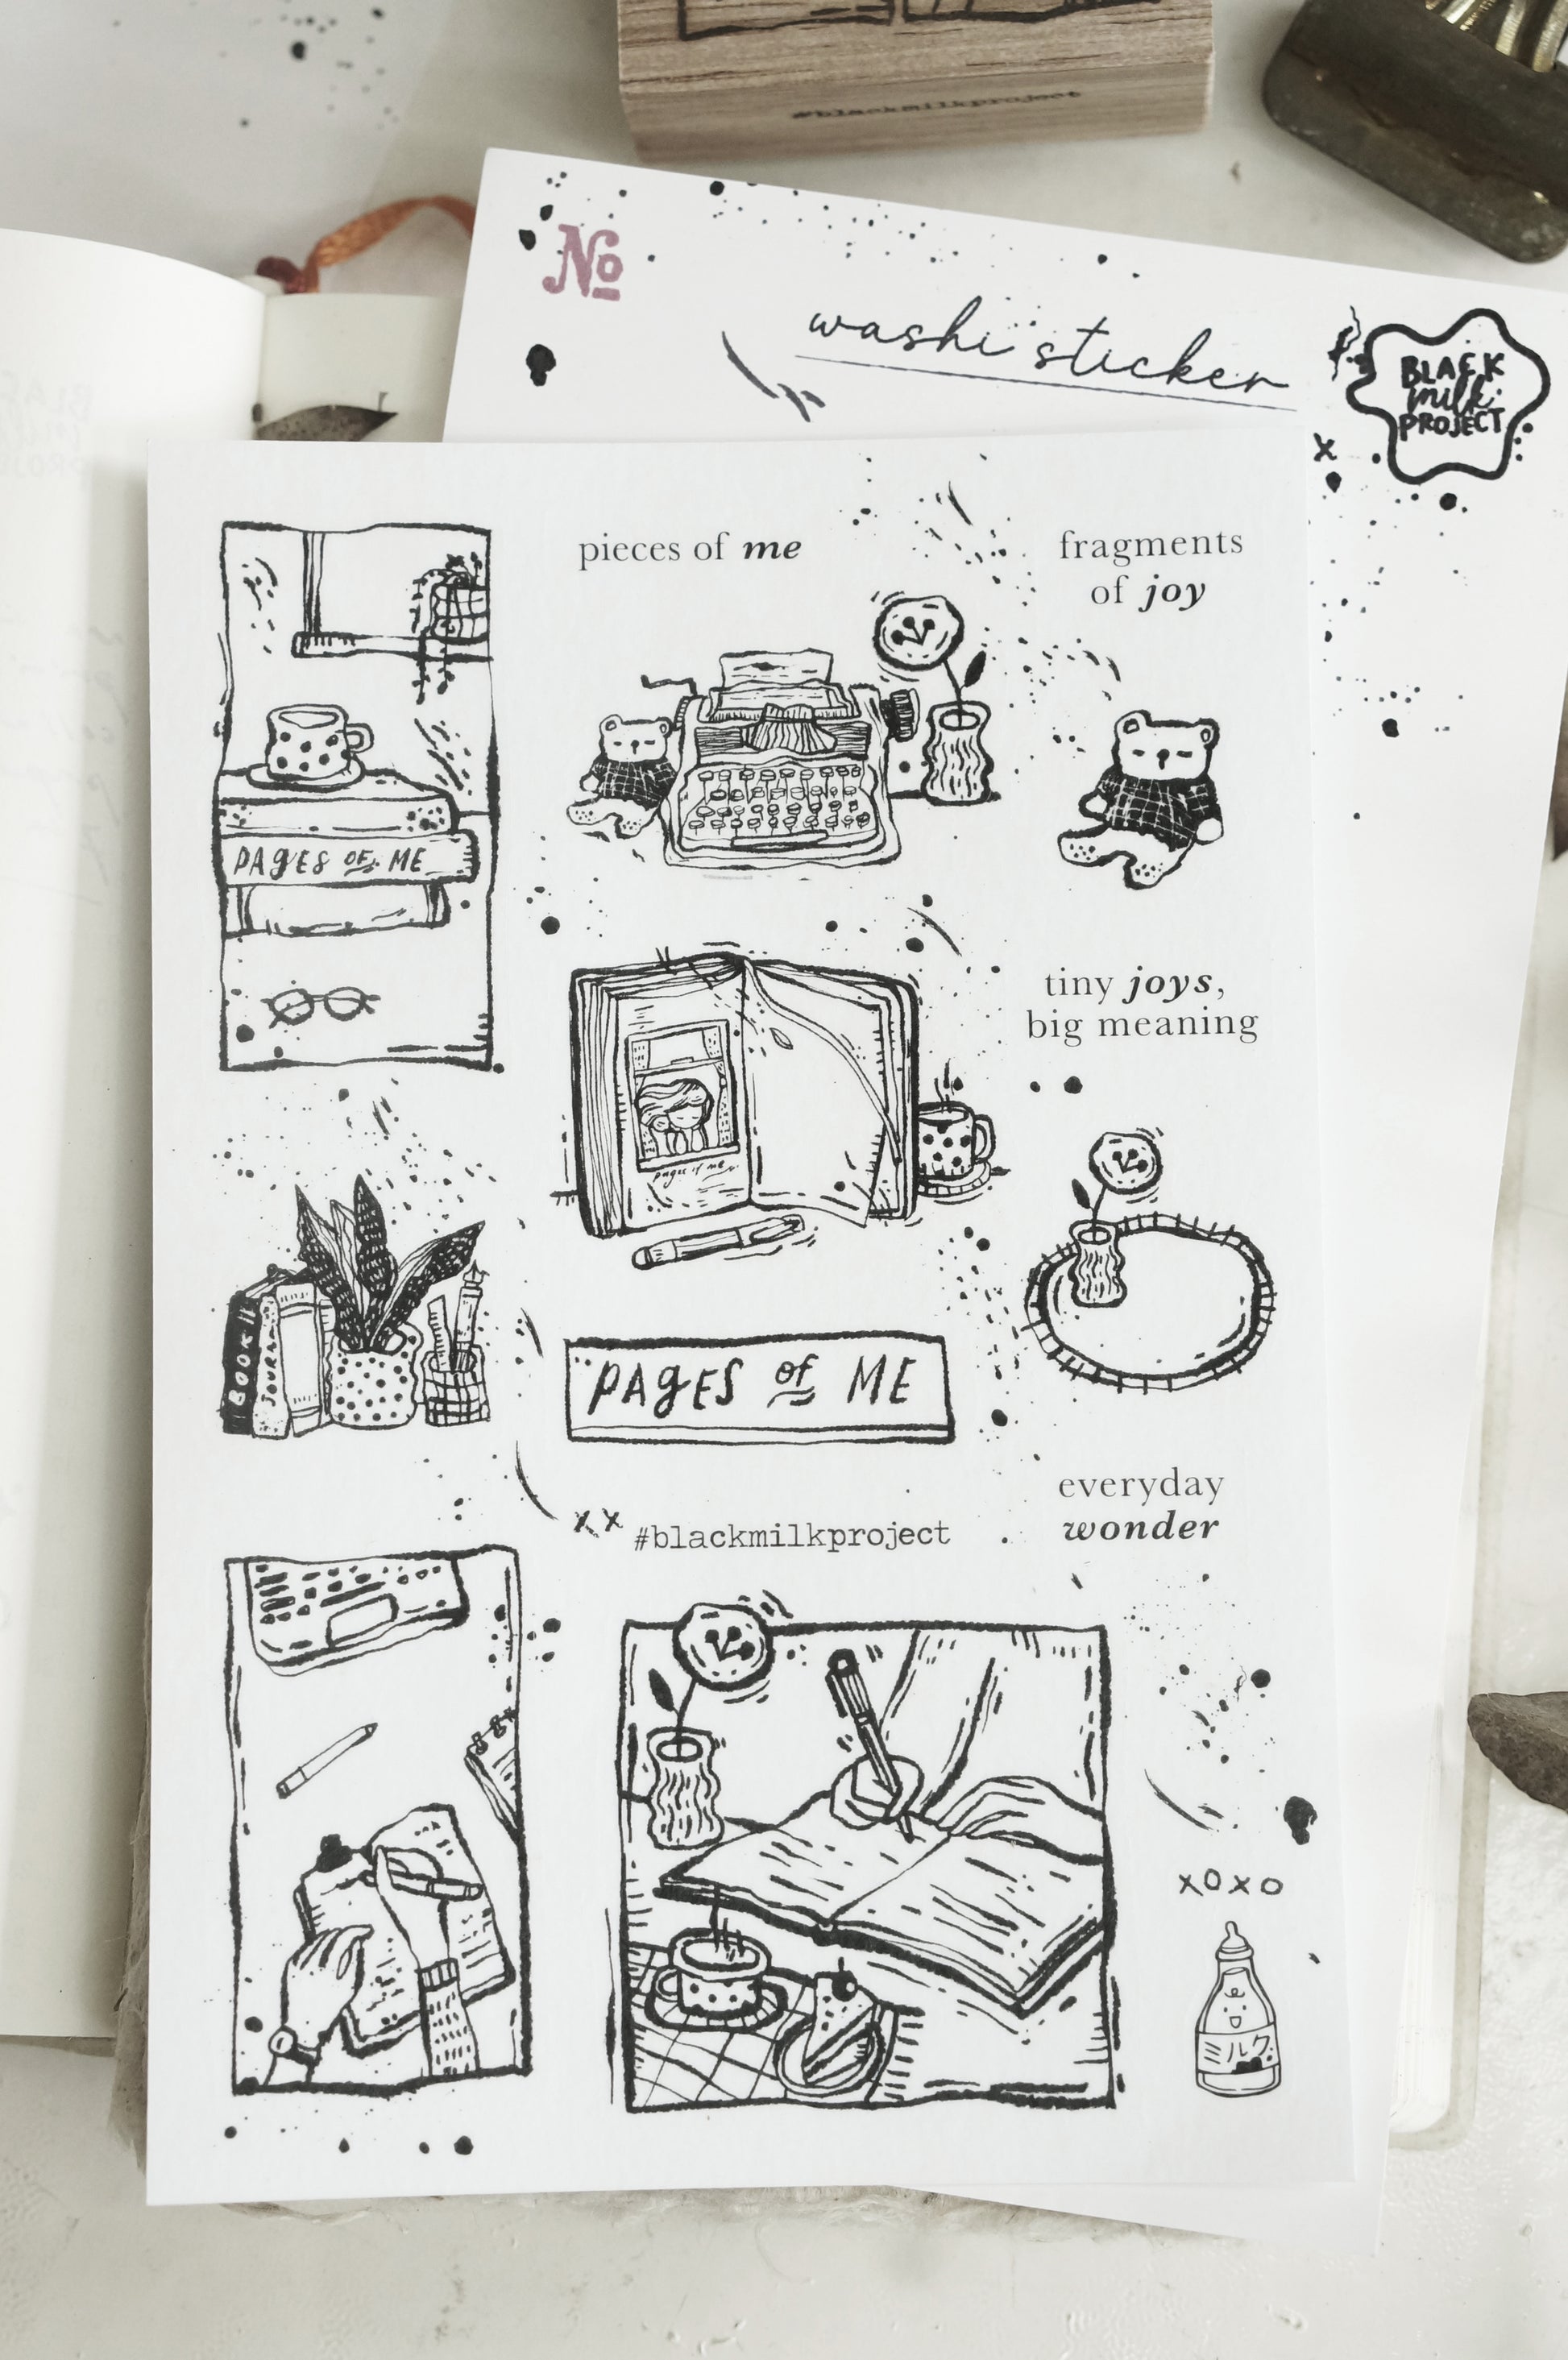 #blackmilkproject
No
washi sticker
BLACK
milk
PROJECT
pieces of me
fragments
of joy
PAGES OF ME
tiny joys,
big meaning
pages of me
BOOK
JOURNAL
PAGES of ME
xx #blackmilkproject
everyday
wonder
xoxo
ミルク